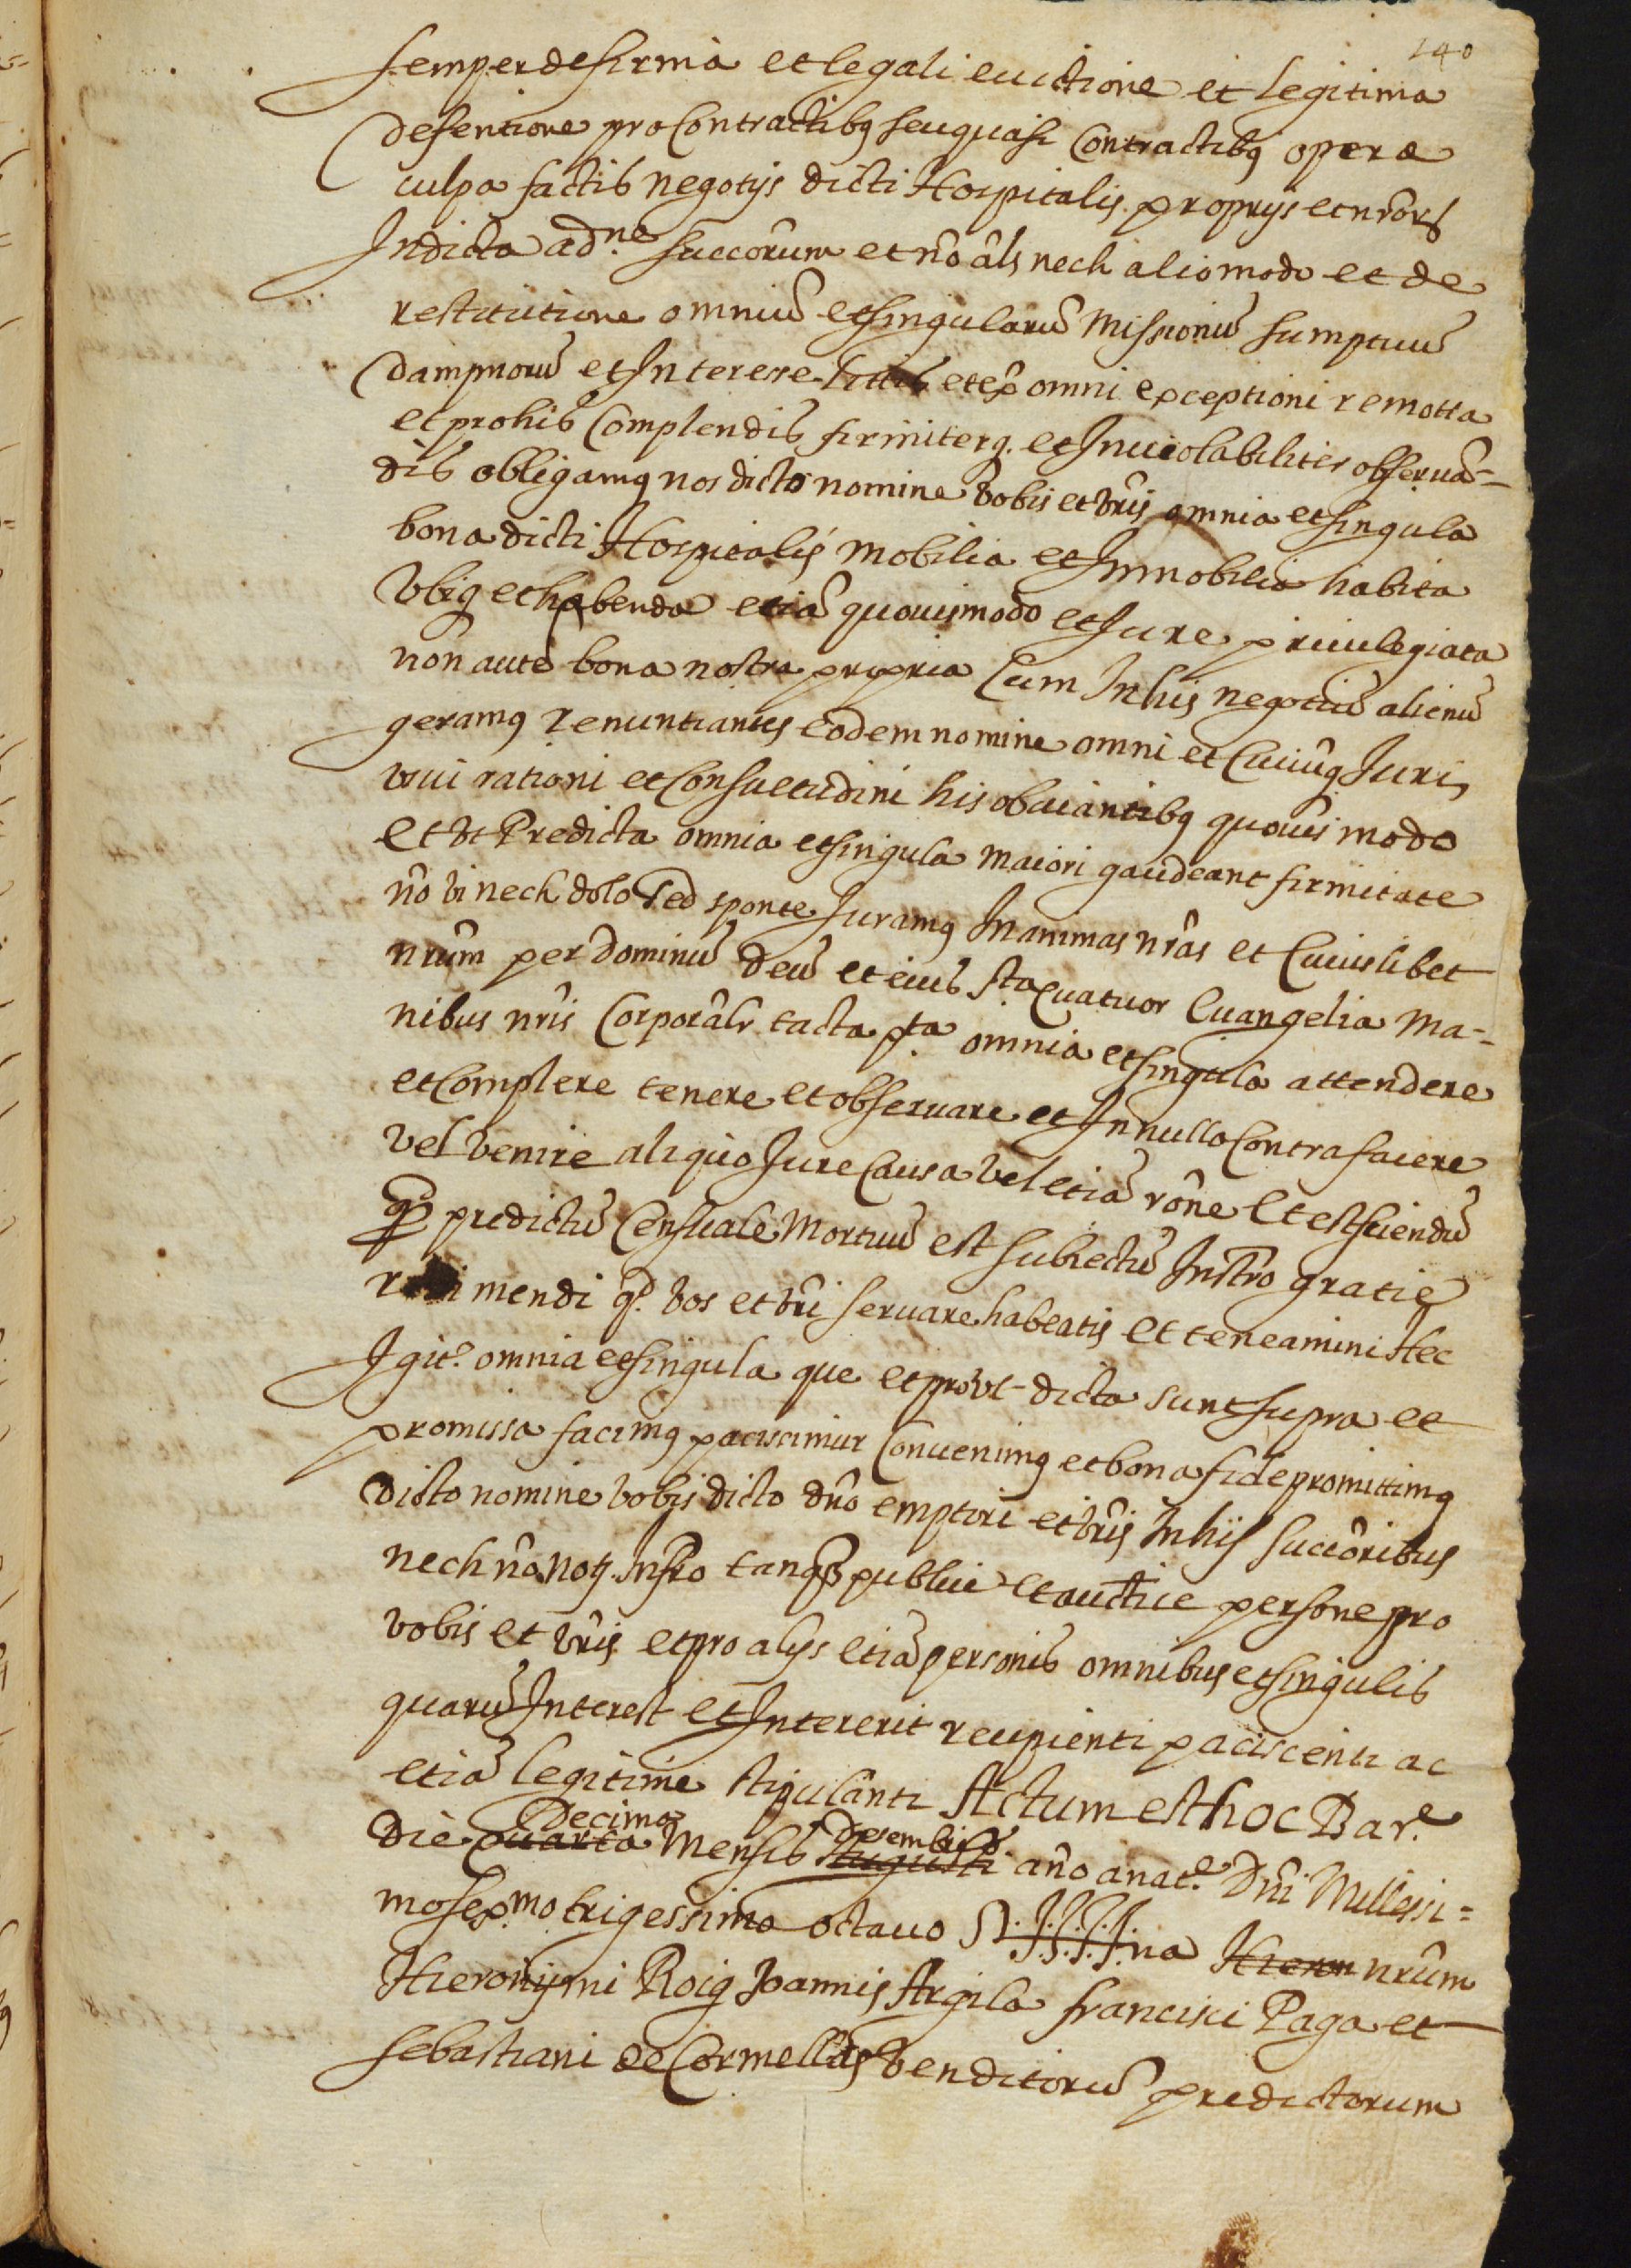 140
semper de firma et legali euictione et legitima
defentione pro Contractibꝯ seu quasi Contractibꝯ opera
culpa factis negotijs dicti Hospitalis proprijs et nr̃orũ
In dicta ad.ne succõrum et nõ als nech alio modo et de
restitutione omniũ et singularũ Missionũ sumptuũ
dampnorũ et Interesse litis et exp̃ omni exceptioni remotta
et pro his Complendis firmiterq. et Inuiolabiliter obseruã=
dis obligamꝯ nos dicto nomine vobis et vr̃is omnia et singula
bona dicti Hospitalis mobilia et Immobilia habita
vbiq et habenda etiã quouismodo et Jure priuilegiata
non autẽ bona nostra propria Cum In his negotiũ alienũ
geramꝯ renuntiantes eodem nomine omni et Cuiuĩq Juri,
vsui rationi et Consuetudini his obuiantibꝯ quouis modo
Et Vt Predicta omnia et singula maiori gaudeant firmitate
nõ vi nech dolo Sed sponte Juramꝯ In animas nr̃as et Cuiuslibet
nr̃um per Dominũ deũ et eius sta Quatuor Euangelia Ma-
nibus nr̃is Corporãlr tacta p.ta omnia et singula attendere
et Complere tenere et obseruare et In nullo Contrafacere
vel venire aliquo Jure Causa vel etiã rõne Et est sciendũ
qp̃ predictũ Censuale Mortuũ est subiectũ Instr̃o gratie
redimendi q.̃ vos et vr̃i seruare habeatis et teneamini Hec
Igit.̃ omnia et singula que et prout dicta sunt supra et
promissa facimꝯ paciscimur Conuenimꝯ et bona fide promittimꝯ
dicto nomine vobis dicto dñõ emptori et vr̃is In hijs succõribus
nech nõ Not. Infr̃o tanq̃ publice et auct̃ice persone pro
vobis et vr̃is et pro alijs etiã personis omnibus et singulis
quarũ Interest et Intererit recipienti paciscenti ac
etiã legitime stipulanti Actum est hoc Bar.e
Decimo Desembris
Die quarta Mensis Augusti año anat.e Dñi Millessi=
mo sex.mo trigessimo octauo S.J.J.J.J.na Hieron nr̃um
Hieronymi Roig Joannis Argila francisci Paga et
sebastiani de Cormellas venditorũ predictorum